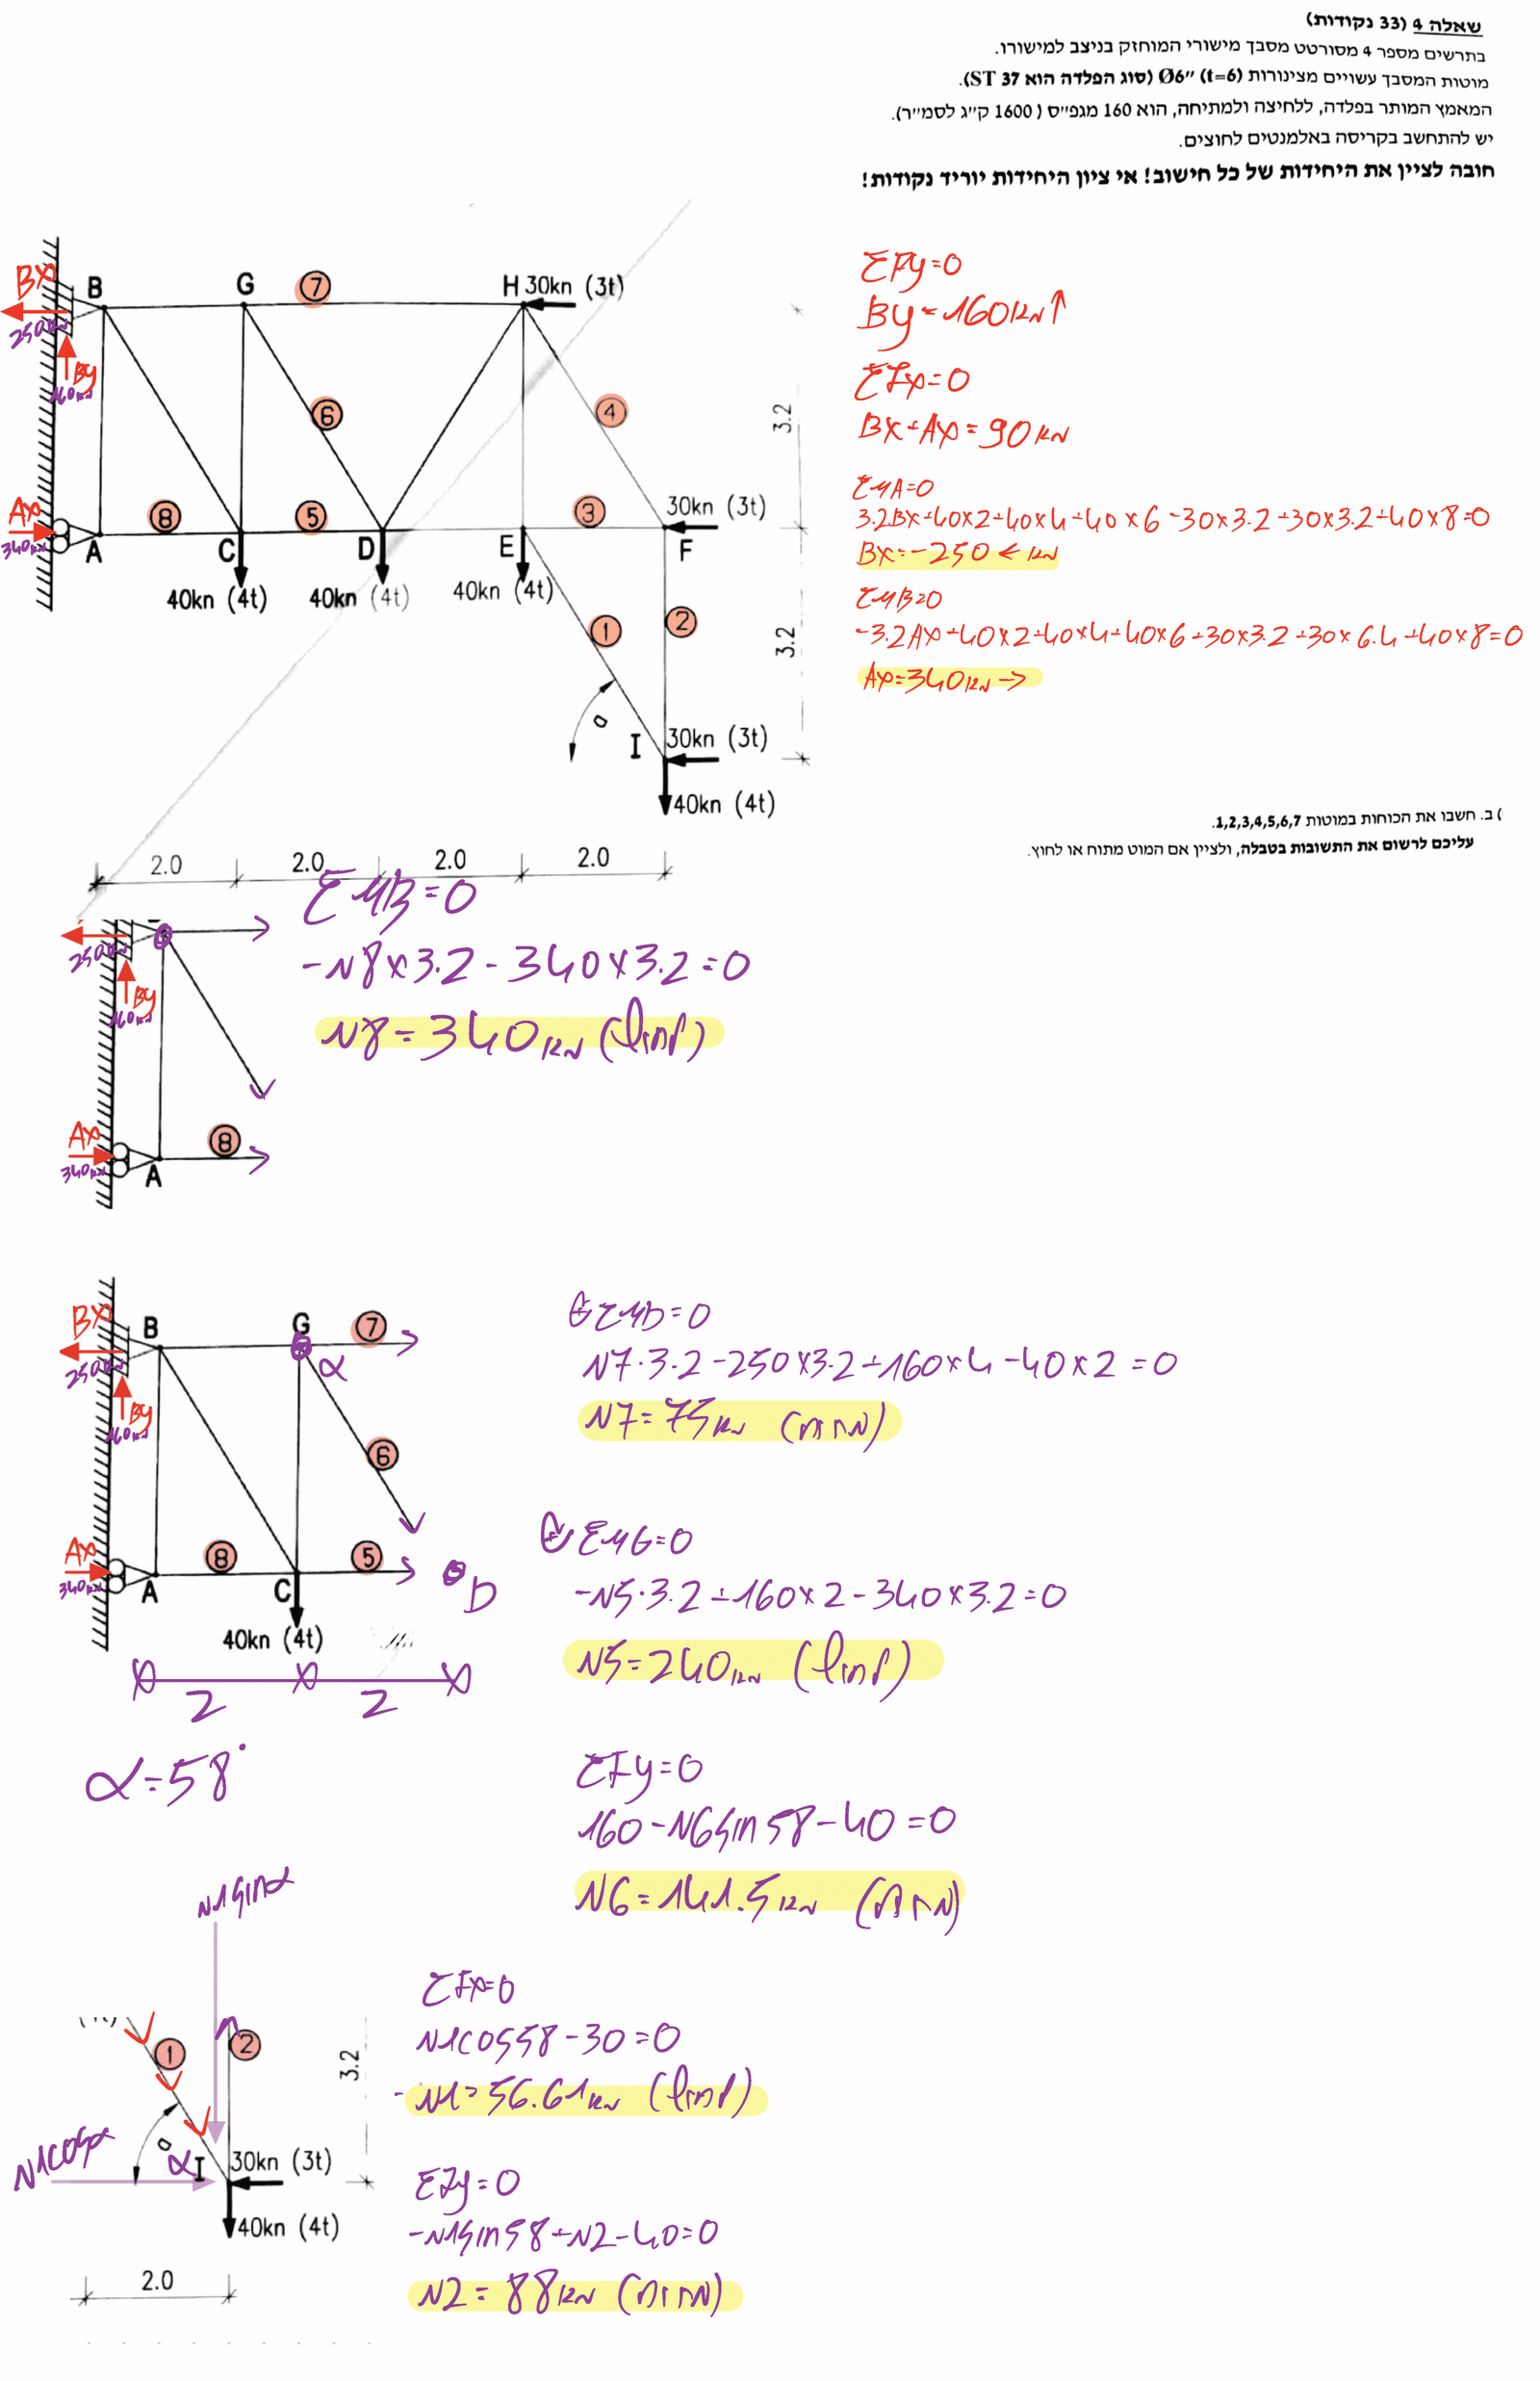 שאלה 4 (33 נקודות)
בתרשים מספר 4 מסורטט מסבך מישורי המוחזק בניצב למישורו.
מוטות המסבך עשויים מצינורות Ø6" (t=6) (סוג הפלדה הוא ST 37).
המאמץ המותר בפלדה, ללחיצה ולמתיחה, הוא 160 מגפ"ס (1600 ק"ג לסמ"ר).
יש להתחשב בקריסה באלמנטים לחוצים.
חובה לציין את היחידות של כל חישוב! אי ציון היחידות יוריד נקודות!
ΣFy=0
By=160kN↑
ΣFx=0
Bx+Ax=90kN
ΣMA=0
3.2Bx+40×2+40×4+40×6-30×3.2+30×3.2+40×8=0
Bx=-250←kN
ΣMB=0
-3.2Ax+40×2+40×4+40×6+30×3.2+30×6.4+40×8=0
Ax=340kN→
Bx
250kN
By
160kN
Ax
340kN
B
G
7
H 30kn (3t)
6
4
3.2
8
5
3
30kn (3t)
A
C
D
E
F
40kn (4t)
40kn (4t)
40kn (4t)
1
2
3.2
α
I
30kn (3t)
40kn (4t)
2.0
2.0
2.0
2.0
ב. חשבו את הכוחות במוטות 1,2,3,4,5,6,7.
עליכם לרשום את התשובות בטבלה, ולציין אם המוט מתוח או לחוץ.
250kN
By
160kN
Ax
340kN
8
A
ΣMB=0
-N8×3.2-340×3.2=0
N8=340kN (לחוץ)
Bx
250kN
By
160kN
Ax
340kN
B
G
7
α
6
8
5
A
C
D
40kn (4t)
2
2
α=58°
ΣMD=0
N7·3.2-250×3.2+160×4-40×2=0
N7=75kN (מתוח)
ΣMG=0
-N5·3.2+160×2-340×3.2=0
N5=240kN (לחוץ)
ΣFy=0
160-N6sin58-40=0
N6=141.5kN (מתוח)
N1sinα
N1cosα
1
2
3.2
α
α
I
30kn (3t)
40kn (4t)
2.0
ΣFx=0
N1cos58-30=0
N1=56.61kN (לחוץ)
ΣFy=0
-N1sin58+N2-40=0
N2=88kN (מתוח)